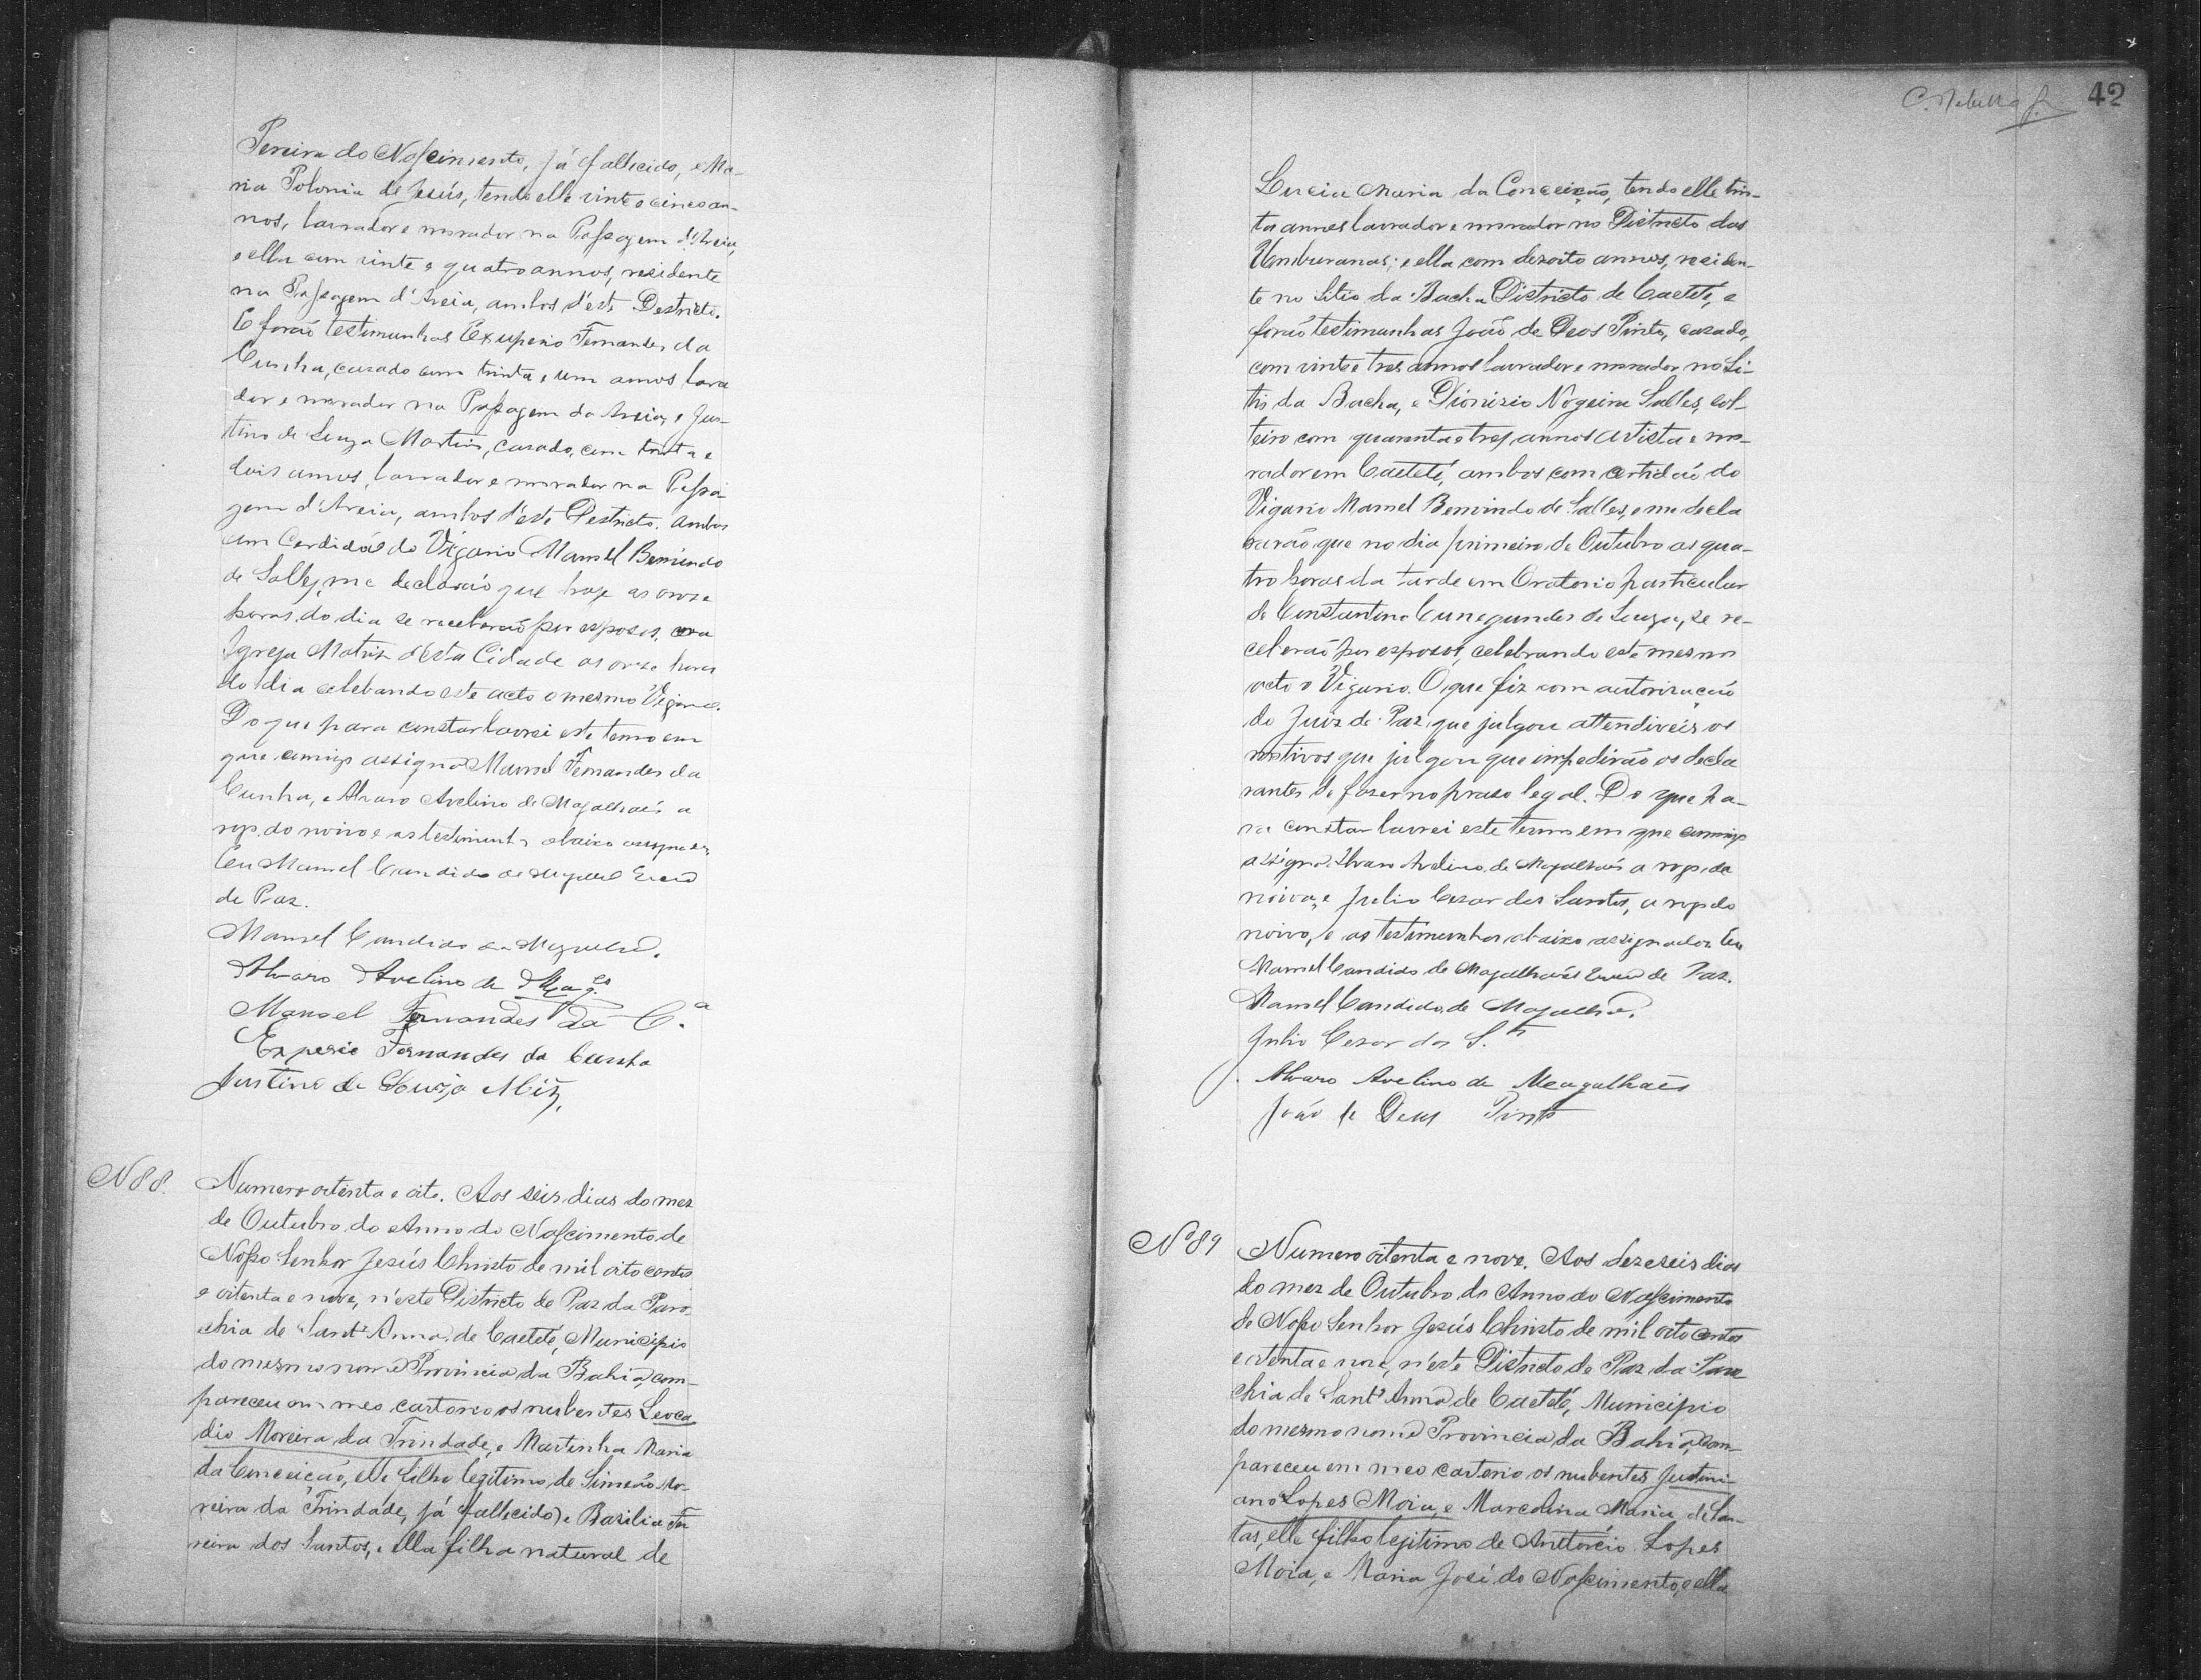 Pereira do Nascimento, já fallecido, e Ma-
ria Polonia de Jesús, tendo elle vinte e cinco an-
nos, lavrador e morador na Passagem d'Areia,
e ella com vinte e quatro annos, residente
na Passagem d'Areia, ambos d'este Destricto.
E forão testimunhas Exuperio Fernandes da
Cunha, casado com trinta e um annos lavra
dor e morador na Passagem da Areia, e Jus-
tino de Souza Martins, casado, com trinta e
dois annos, lavrador e morador na Passa-
gem d'Areia, ambos d'este Destricto. Ambos
com Cerdidáo do Vigario Manoel Bemvindo
de Salles, me declararão que hoje as onze
horas do dia se receberão por esposos, na
Igreja Matriz d'esta Cidade as onze horas
do dia celebando este acto o mesmo Vigario.
Do que para constar lavrei este termo em
que comigo assigna Manoel Fernandes da
Cunha, e Alvaro Avelino de Magalhaés a
rogo do noivo e as testimunhs abaixo assignados,
Eu Manoel Candido de Magalhães Escrivão
de Paz.
Manoel Candido de Magalhães.
Alvaro Avelino de Mag.es
Manoel Fernandes da C.a
Experio Fernandes da Cunha
Justino de Souza Miz,
N 88.
Numero oitenta e oito. Aos seis dias do mez
de Outubro do Anno do Nascimento de
Nosso Senhor Jesús Christo de mil oito centos
e oitenta e nove, n'este Districto de Paz da Paro-
chia de Sant'Anna de Caeteté, Municipio
do mesmo nome Provincia da Bahia, com-
pareceu em meo cartorio os nubentes Leoca
dio Moreira da Trindade, e Martinha Maria
da Conceicão, elle filho legitimo de Simeão Mo-
reira da Trindade, já fallecido, e Basilia Fer
reira dos Santos, e ella filha natural de
42
Lucia Maria da Conceição, tendo elle trin-
ta annos lavrador e morador no Districto das
Umburanas; e ella com dezoito annos, residen-
te no Sitio da Bacha Districto de Caeteté, e
forão testimunhas João de Deos Pinto, casado,
com vinte e tres annos lavrador e morador no Si-
tio da Bacha, e Dionizio Nogeira Salles, sol-
teiro com quarenta e tres annos artista e mo-
rador em Caeteté, ambos com certidão do
Vigario Manoel Bemvindo de Salles, e me decla
rarão que no dia primeiro de Outubro as qua-
tro horas da tarde em Oratorio particular
de Constantino Cunegundes de Souza, se re-
ceberão por esposos, celebrando este mesmo
acto o Vigario. O que fiz com autorização
do Juiz de Paz, que julgou attendiveis os
motivos que julgou que impedirão os decla
rantes de fazer no praso legal. Do que pa-
ra constar lavrei este termo em que comigo
assigna Alvaro Avelino de Magalhaés a rogo da
noiva, e Julio Cezar dos Santos, a rogo do
noivo, e as testimunhas abaixo assignados. Eu
Manoel Candido de Magalhaés Escrivão de Paz.
Manoel Candido de Magalhães.
Julio Cezar dos S.tos
Alvaro Avelino de Magalhaes
João de Deus Pinto
Nº 89
Numero oitenta e nove. Aos dezeseis dias
do mez de Outubro do Anno do Nascimento
de Nosso Senhor Jesús Christo de mil oito centos
e oitenta e nove, n'este Districto de Paz da Paro
chia de Sant'Anna de Caeteté, Municipio
do mesmo nome Provincia da Bahia, com-
pareceu em meo cartorio os nubentes Justini-
ano Lopes Moia, e Marcolina Maria de San-
tos, elle filho legitimo de Antonio Lopes
Moia, e Maria José do Nascimento, e ella